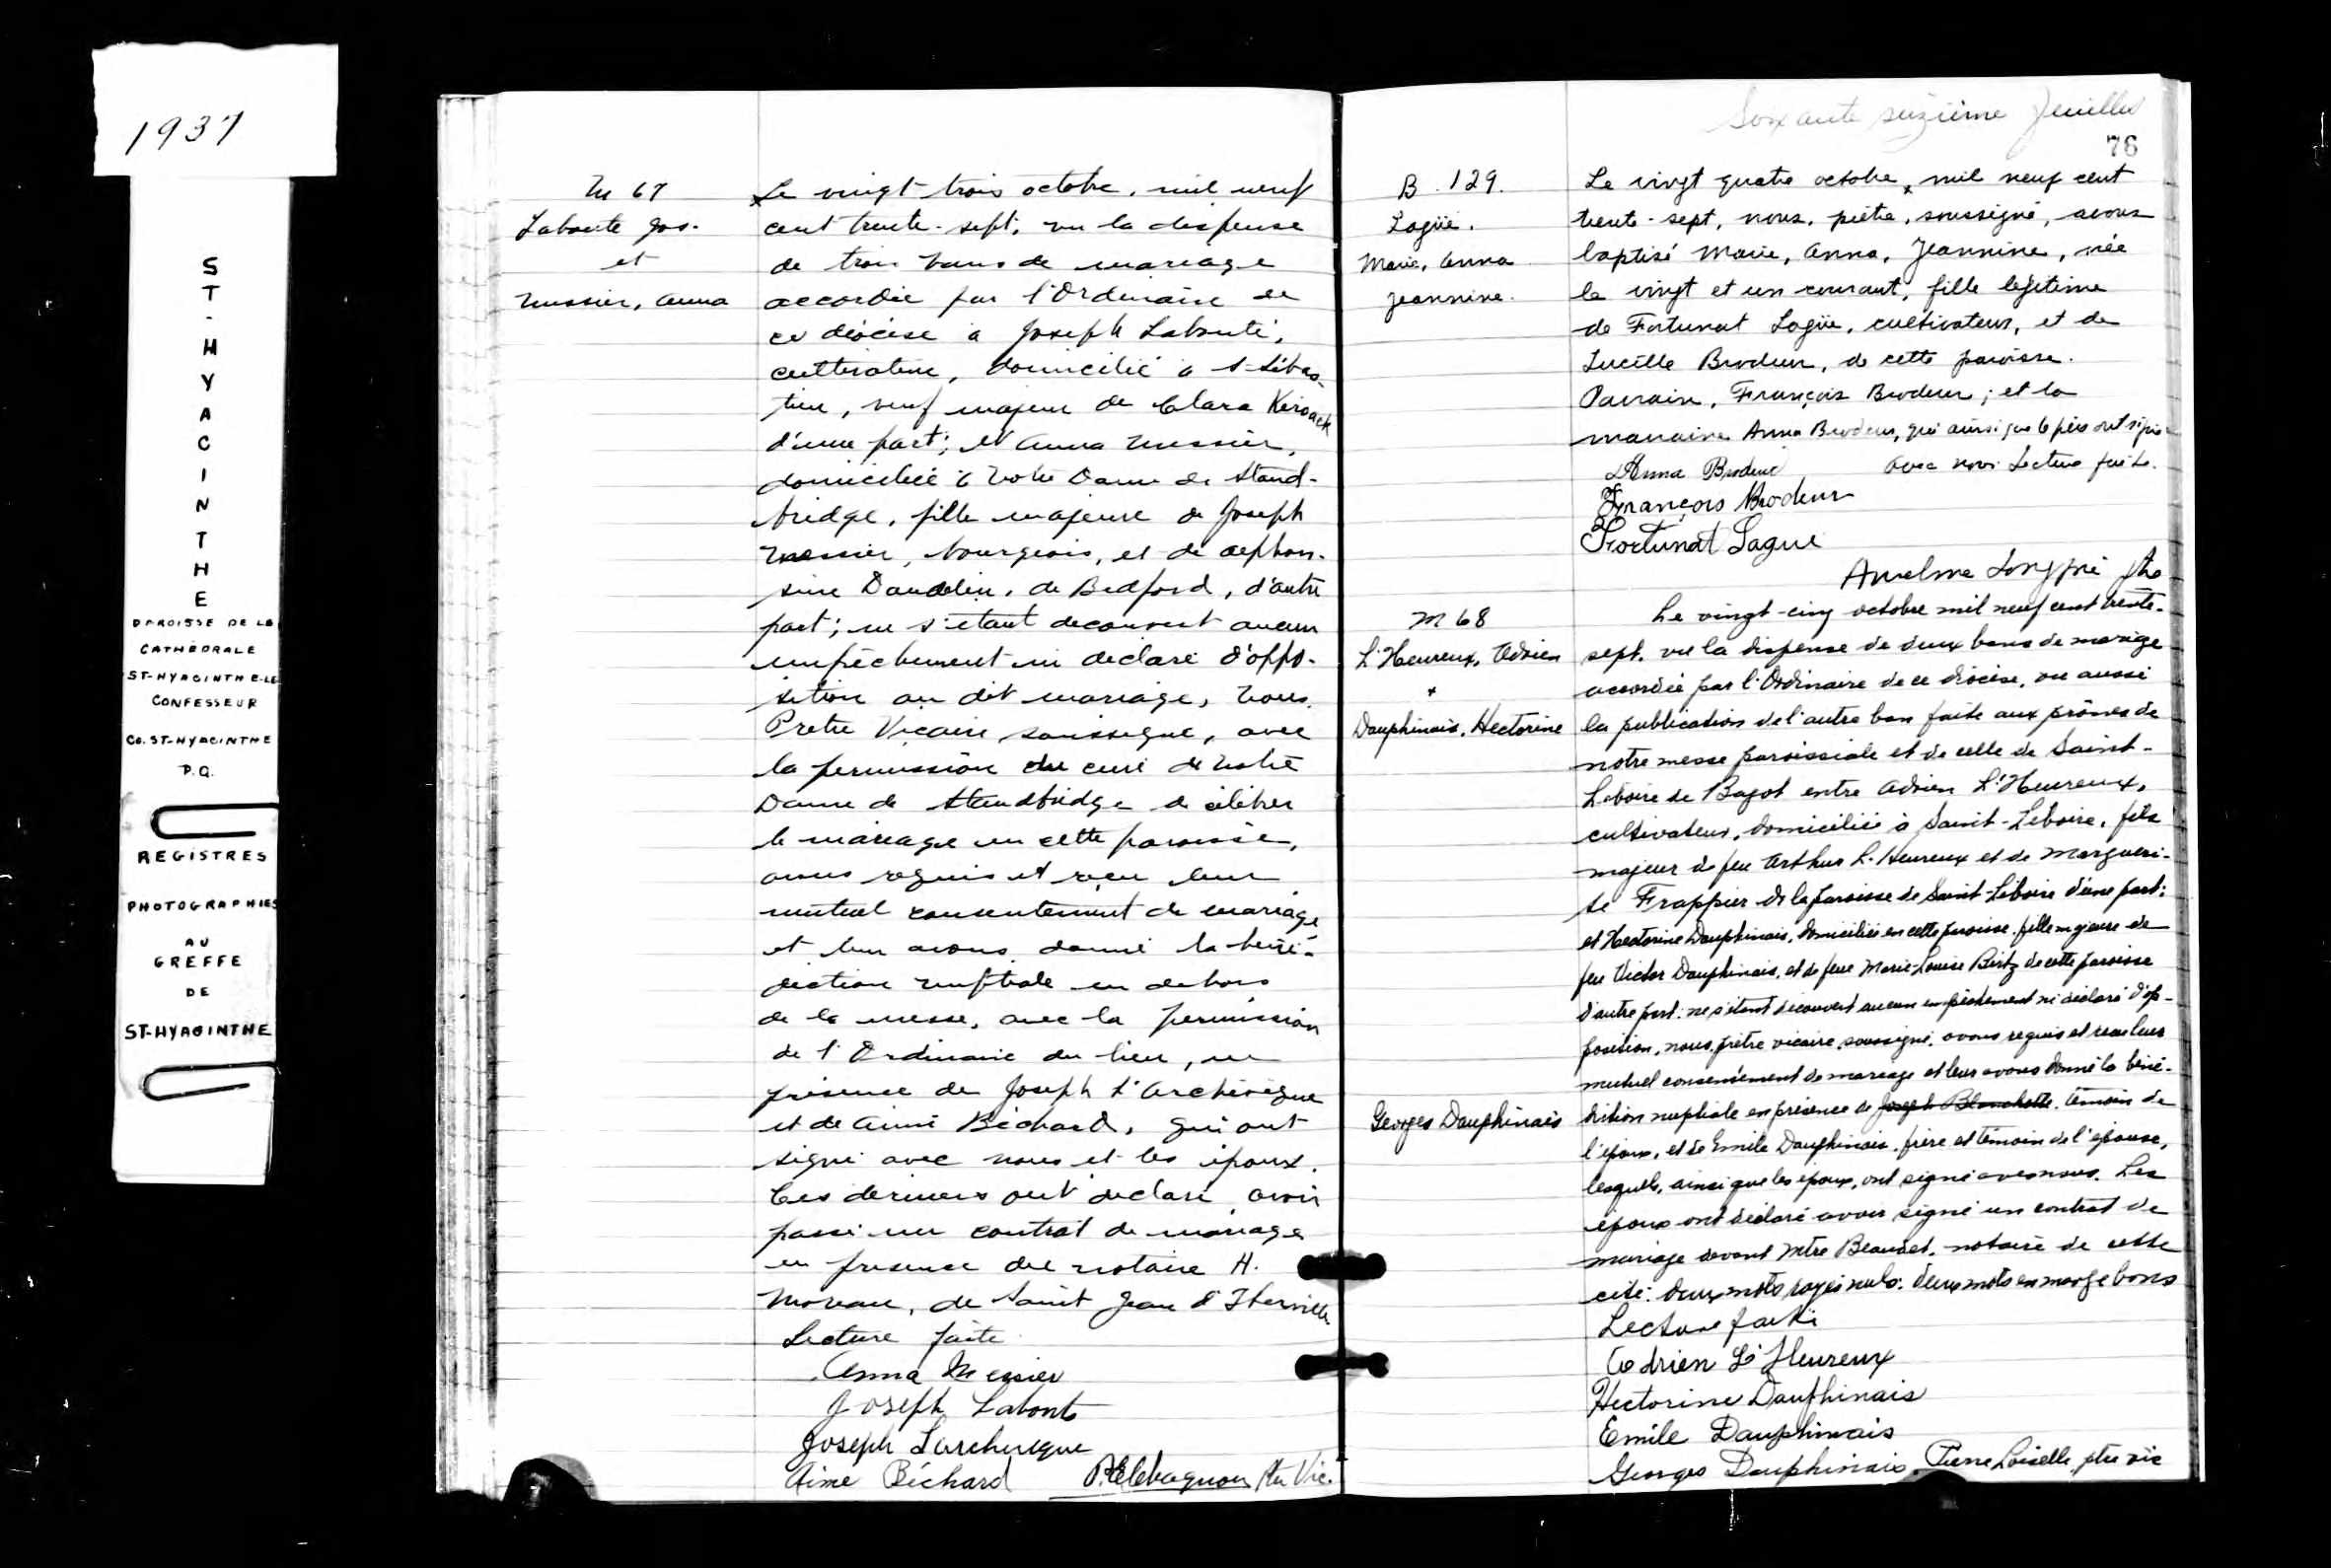 1937
ST-HYACINTHE
PAROISSE DE LA
CATHÉDRALE
ST-HYACINTHE-LE
CONFESSEUR
Co. ST-HYACINTHE
P.Q.
REGISTRES
PHOTOGRAPHIES
AU
GREFFE
DE
ST-HYACINTHE
M 67
Labonté Jos.
et
Messier, Anna
Le vingt-trois octobre, mil neuf
cent trente-sept, vu la dispense
de trois bans de mariage
accordée par l'Ordinaire de
ce diocèse à Joseph Labonté,
cultivateur, domicilié à S-Sébas-
tien, veuf majeur de Clara Keroack
d'une part; et Anna Messier,
domiciliée à Notre Dame de Stand-
bridge, fille majeure de Joseph
Messier, bourgeois, et de Alphon-
sine Daudelin, de Bedford, d'autre
part; ne s'étant découvert aucun
empêchement ni déclaré d'oppo-
sition au dit mariage, Nous,
Prêtre Vicaire soussigné, avec
la permission du curé de Notre
Dame de Standbridge de célébrer
le mariage en cette paroisse,
avons requis et reçu leur
mutuel consentement de mariage
et leur avons donné la béné-
diction nuptiale en dehors
de la messe, avec la permission
de l'Ordinaire du lieu, en
présence de Joseph L'Archévêque
et de Aimé Béchard, qui ont
signé avec nous et les époux.
Ces derniers ont déclaré avoir
passé un contrat de mariage
en présence du notaire H.
Moreau, de Saint Jean d'Iberville
Lecture faite
Anna Messier
Joseph Labonté
Joseph Larchevêque
Aimé Béchard Ptr Vic.
Soixante seizième feuillet
76
B. 129.
Lagüe.
Marie, Anna
Jeannine.
Le vingt quatre octobre, mil neuf cent
trente-sept, nous, prêtre, soussigné, avons
baptisé Marie, Anna, Jeannine, née
le vingt et un courant, fille légitime
de Fortunat Lagüe, cultivateur, et de
Lucille Brodeur, de cette paroisse.
Parrain, François Brodeur; et la
marraine Anna Brodeur, qui ainsi que le père ont signé
avec nous. Lecture faite.
Anna Brodeur
François Brodeur
Fortunat Lague
Anselme Longpré ptre
M 68
L'Heureux, Adrien
+
Dauphinais, Hectorine
Le vingt-cinq octobre mil neuf cent trente-
sept, vu la dispense de deux bans de mariage
accordée par l'Ordinaire de ce diocèse, vu aussi
la publication de l'autre ban faite aux prônes de
notre messe paroissiale et de celle de Saint-
Liboire de Bagot entre Adrien L'Heureux,
cultivateur, domicilié à Saint-Liboire, fils
majeur de feu Arthur L'Heureux et de Margueri-
te Frappier de la paroisse de Saint-Liboire d'une part:
et Hectorine Dauphinais, domiciliée en cette paroisse, fille majeure de
feu Victor Dauphinais, et de feue Marie-Louise Birtz de cette paroisse
d'autre part: ne s'étant découvert aucun empêchement ni déclaré d'op-
position, nous, prêtre vicaire soussigné, avons requis et reçu leur
mutuel consentement de mariage et leur avons donné la béné-
Georges Dauphinais
diction nuptiale en présence de Joseph Blanchette, témoin de
l'époux, et de Emile Dauphinais, frère et témoin de l'épouse,
lesquels, ainsi que les époux, ont signé avec nous. Les
époux ont déclaré avoir signé un contrat de
mariage devant Mtre Beaudet, notaire de cette
cité: deux mots rayés nuls: deux mots en marge bons
Lecture faite
Adrien L'Heureux
Hectorine Dauphinais
Emile Dauphinais
Georges Dauphinais. Pierre Loiselle, ptre vic